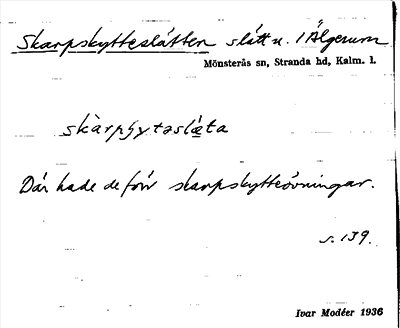 Skarpskytteslätten slätt n. i Älgerum
Mönsterås sn, Stranda hd, Kalm. l.
Där hade de förr skarpskytteövningar.
s. 139.
Ivar Modéer 1936